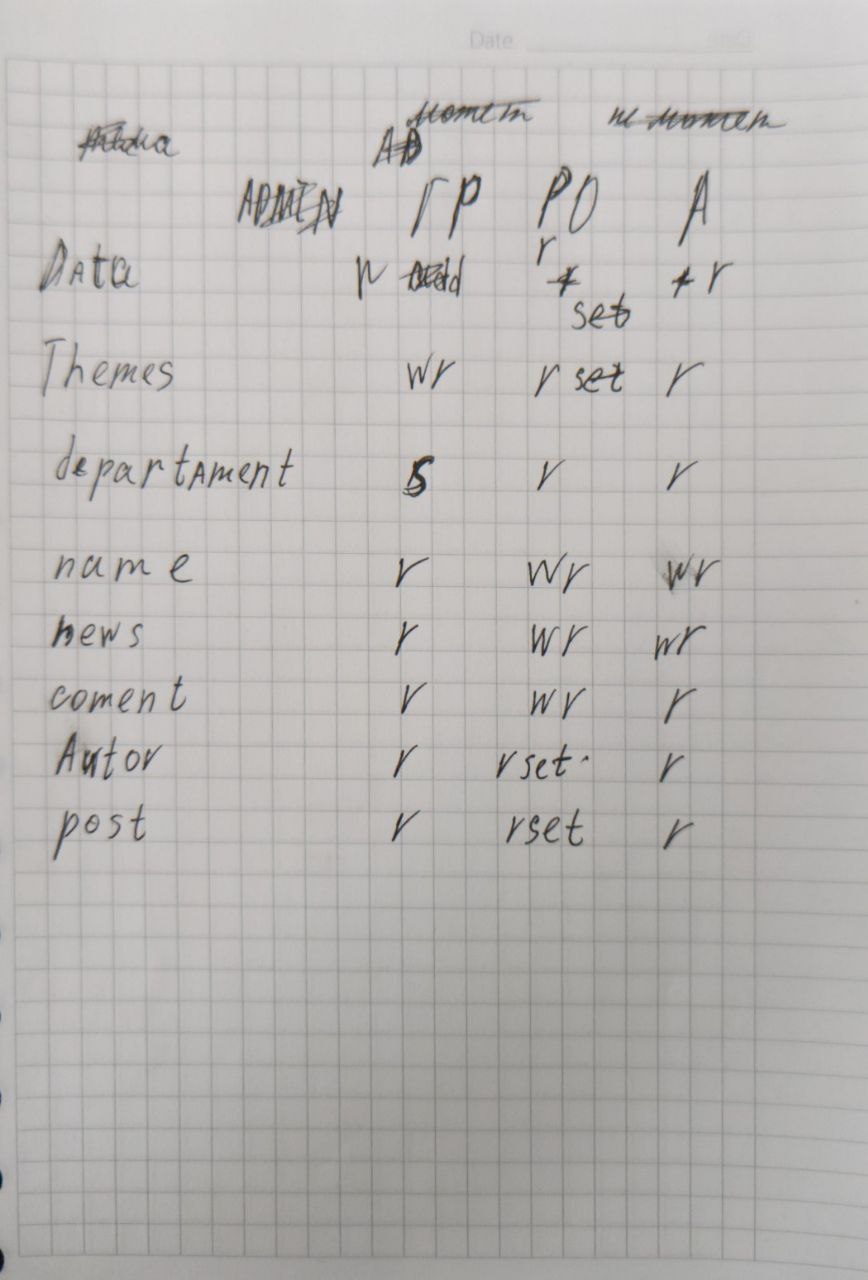 Date
может
не может
ADMIN ГР РО А
Data r r set r
Themes wr r set r
departament s r r
name r wr wr
news r wr wr
coment r wr r
Autor r r set r
post r r set r